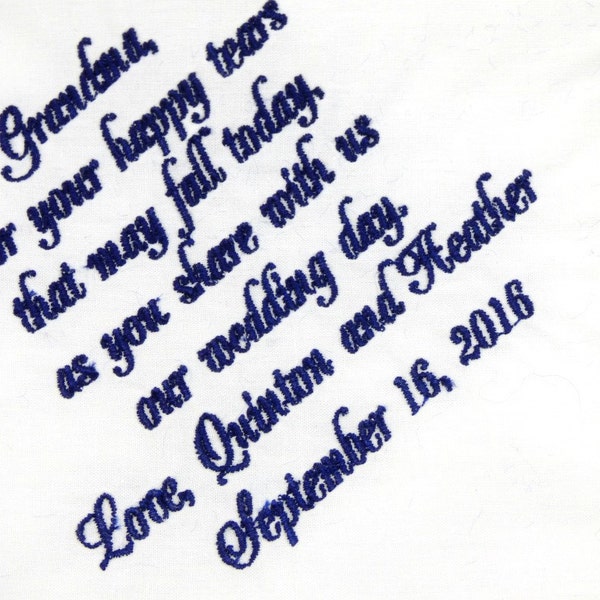 Grandma,
your happy tears
that may fall today.
as you share with us
our wedding day.
Love, Quinton and Heather
September 16, 2016